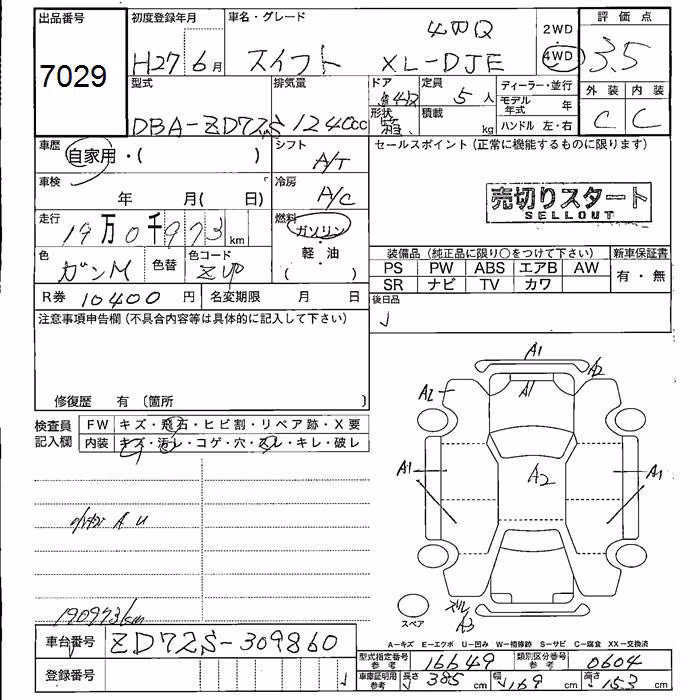 出品番号
7029
初度登録年月
H27 6月
車名・グレード
スイフト
4WD
XL-DJE
2WD
4WD
評価点
3.5
外装 内装
C C
型式
DBA-ZD72S
排気量
1240cc
ドア
形状
定員
5人
積載
kg
ディーラー・並行
モデル年式 年
ハンドル 左・右
車歴
自家用・( )
シフト
A/T
セールスポイント(正常に機能するものに限ります)
車検
年 月( 日)
冷房
A/C
売切りスタート
SELLOUT
走行
19万0千973km
燃料
ガソリン
・軽油
( )
色
ガンM
色替
色コード
装備品(純正品に限り○をつけて下さい)
新車保証書
PS PW ABS エアB AW
有・無
SR ナビ TV カワ
R券 10400円
名変期限 月 日
後日品
注意事項申告欄(不具合内容等は具体的に記入して下さい)
修復歴 有〔箇所 〕
検査員記入欄
FW キズ・飛石・ヒビ割・リペア跡・X要
内装 キズ・汚レ・コゲ・穴・スレ・キレ・破レ
A1
A2
A1
A2
A1
A2
A1
A3
スペア
190973km
A-キズ E-エクボ U-凹み W-補修跡 S-サビ C-腐食 XX-交換済
車台番号
ZD72S-309860
型式指定番号 参考
16649
類別区分番号 参考
0604
登録番号
車庫証明用 参考
長さ 385cm
幅 169cm
高さ 153cm